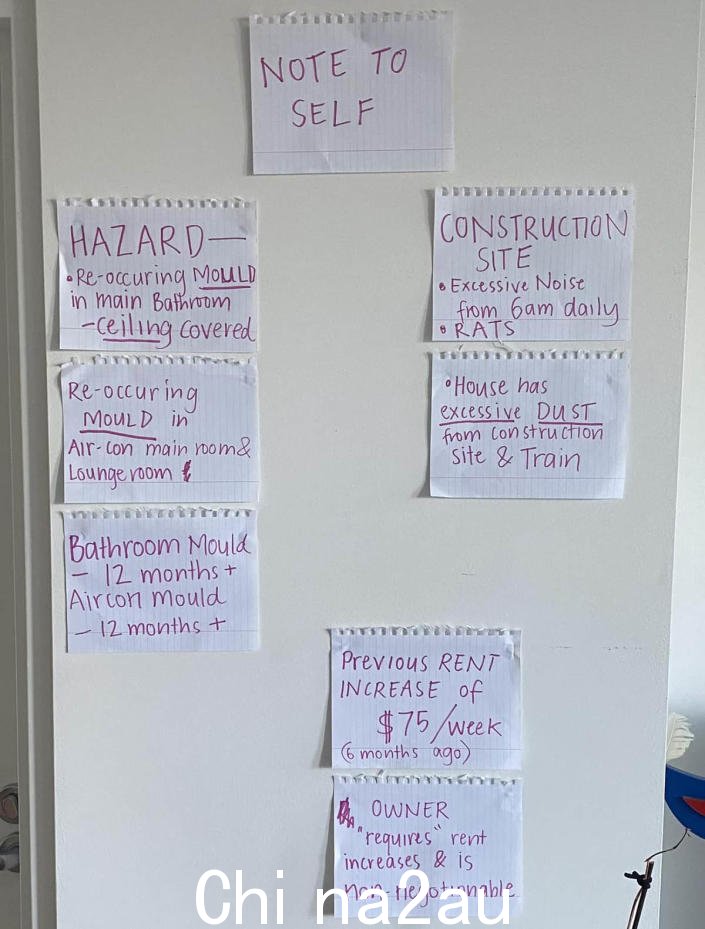 NOTE TO
SELF
HAZARD—
• Re-occuring MOULD
in main Bathroom
- ceiling covered
Re-occuring
MOULD in
Air-con main room &
Lounge room
Bathroom Mould
- 12 months +
Aircon Mould
- 12 months +
CONSTRUCTION
SITE
• Excessive Noise
from 6am daily
• RATS
• House has
excessive DUST
from construction
site & Train
Previous RENT
INCREASE of
$75/week
(6 months ago)
OWNER
"requires" rent
increases & is
Chi na2au